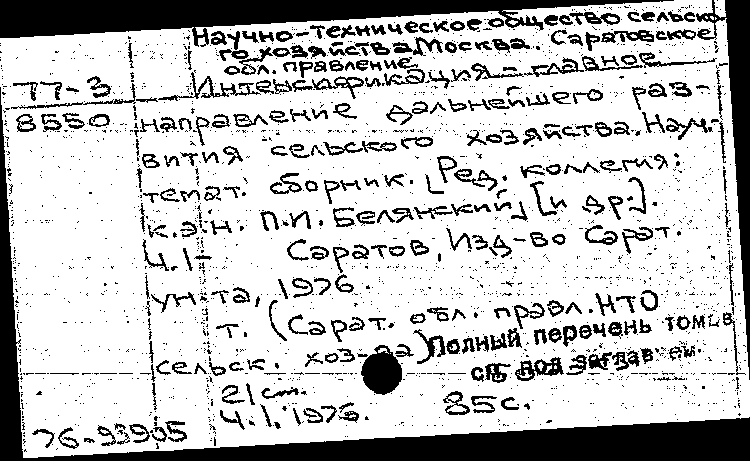 Научно-техническое общество сельско-
го хозяйства. Москва. Саратовское
обл. правление
77-3 Интенсификация - главное
8550 направление дальнейшего раз-
вития сельского хозяйства. Науч.-
темат. сборник. [Ред. коллегия:
к.э.н. П.И. Белянский] [и др.].
Ч.1- Саратов, Изд-во Сарат.
ун-та, 1976.
т. (Сарат. обл. правл. НТО
сельск. хоз-ва) Полный перечень томов
см. под заглавием
21 cm.
Ч.1. 1976. 85с.
76-93905